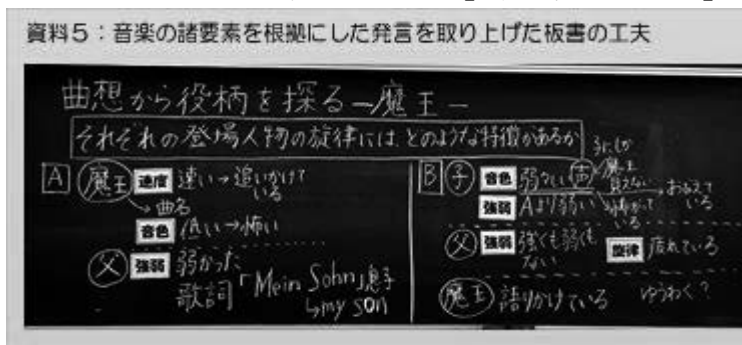 資料5：音楽の諸要素を根拠にした発言を取り上げた板書の工夫
曲想から役柄を探る－魔王－
それぞれの登場人物の旋律には、どのような特徴があるか
A 魔王 速度 速い→追いかけている
→曲名
音色 低い→怖い
父 強弱 弱かった
歌詞「Mein Sohn」息子
↳my son
B 子 音色 弱々しい声
子にしか魔王見えない
→おびえている
強弱 Aより弱い→怖がっている
父 強弱 強くも弱くもない 旋律 疲れている
魔王 語りかけている ゆうわく？